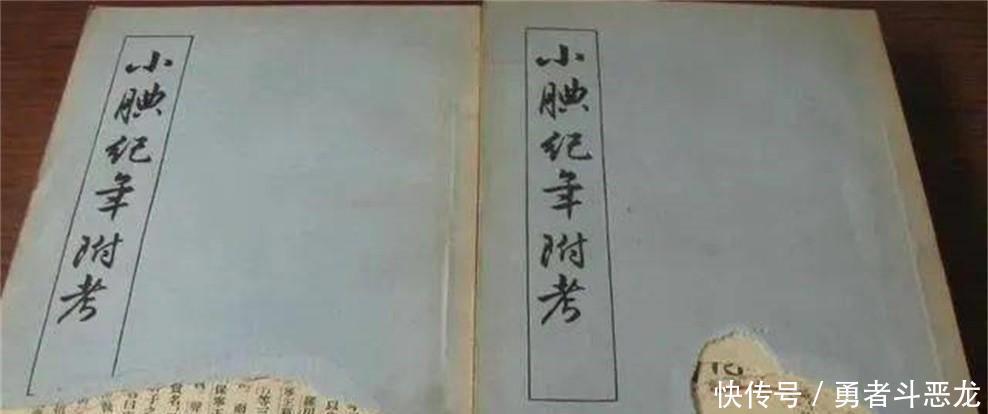 小腆紀年附考
小腆紀年附考
快传号 / 勇者斗恶龙